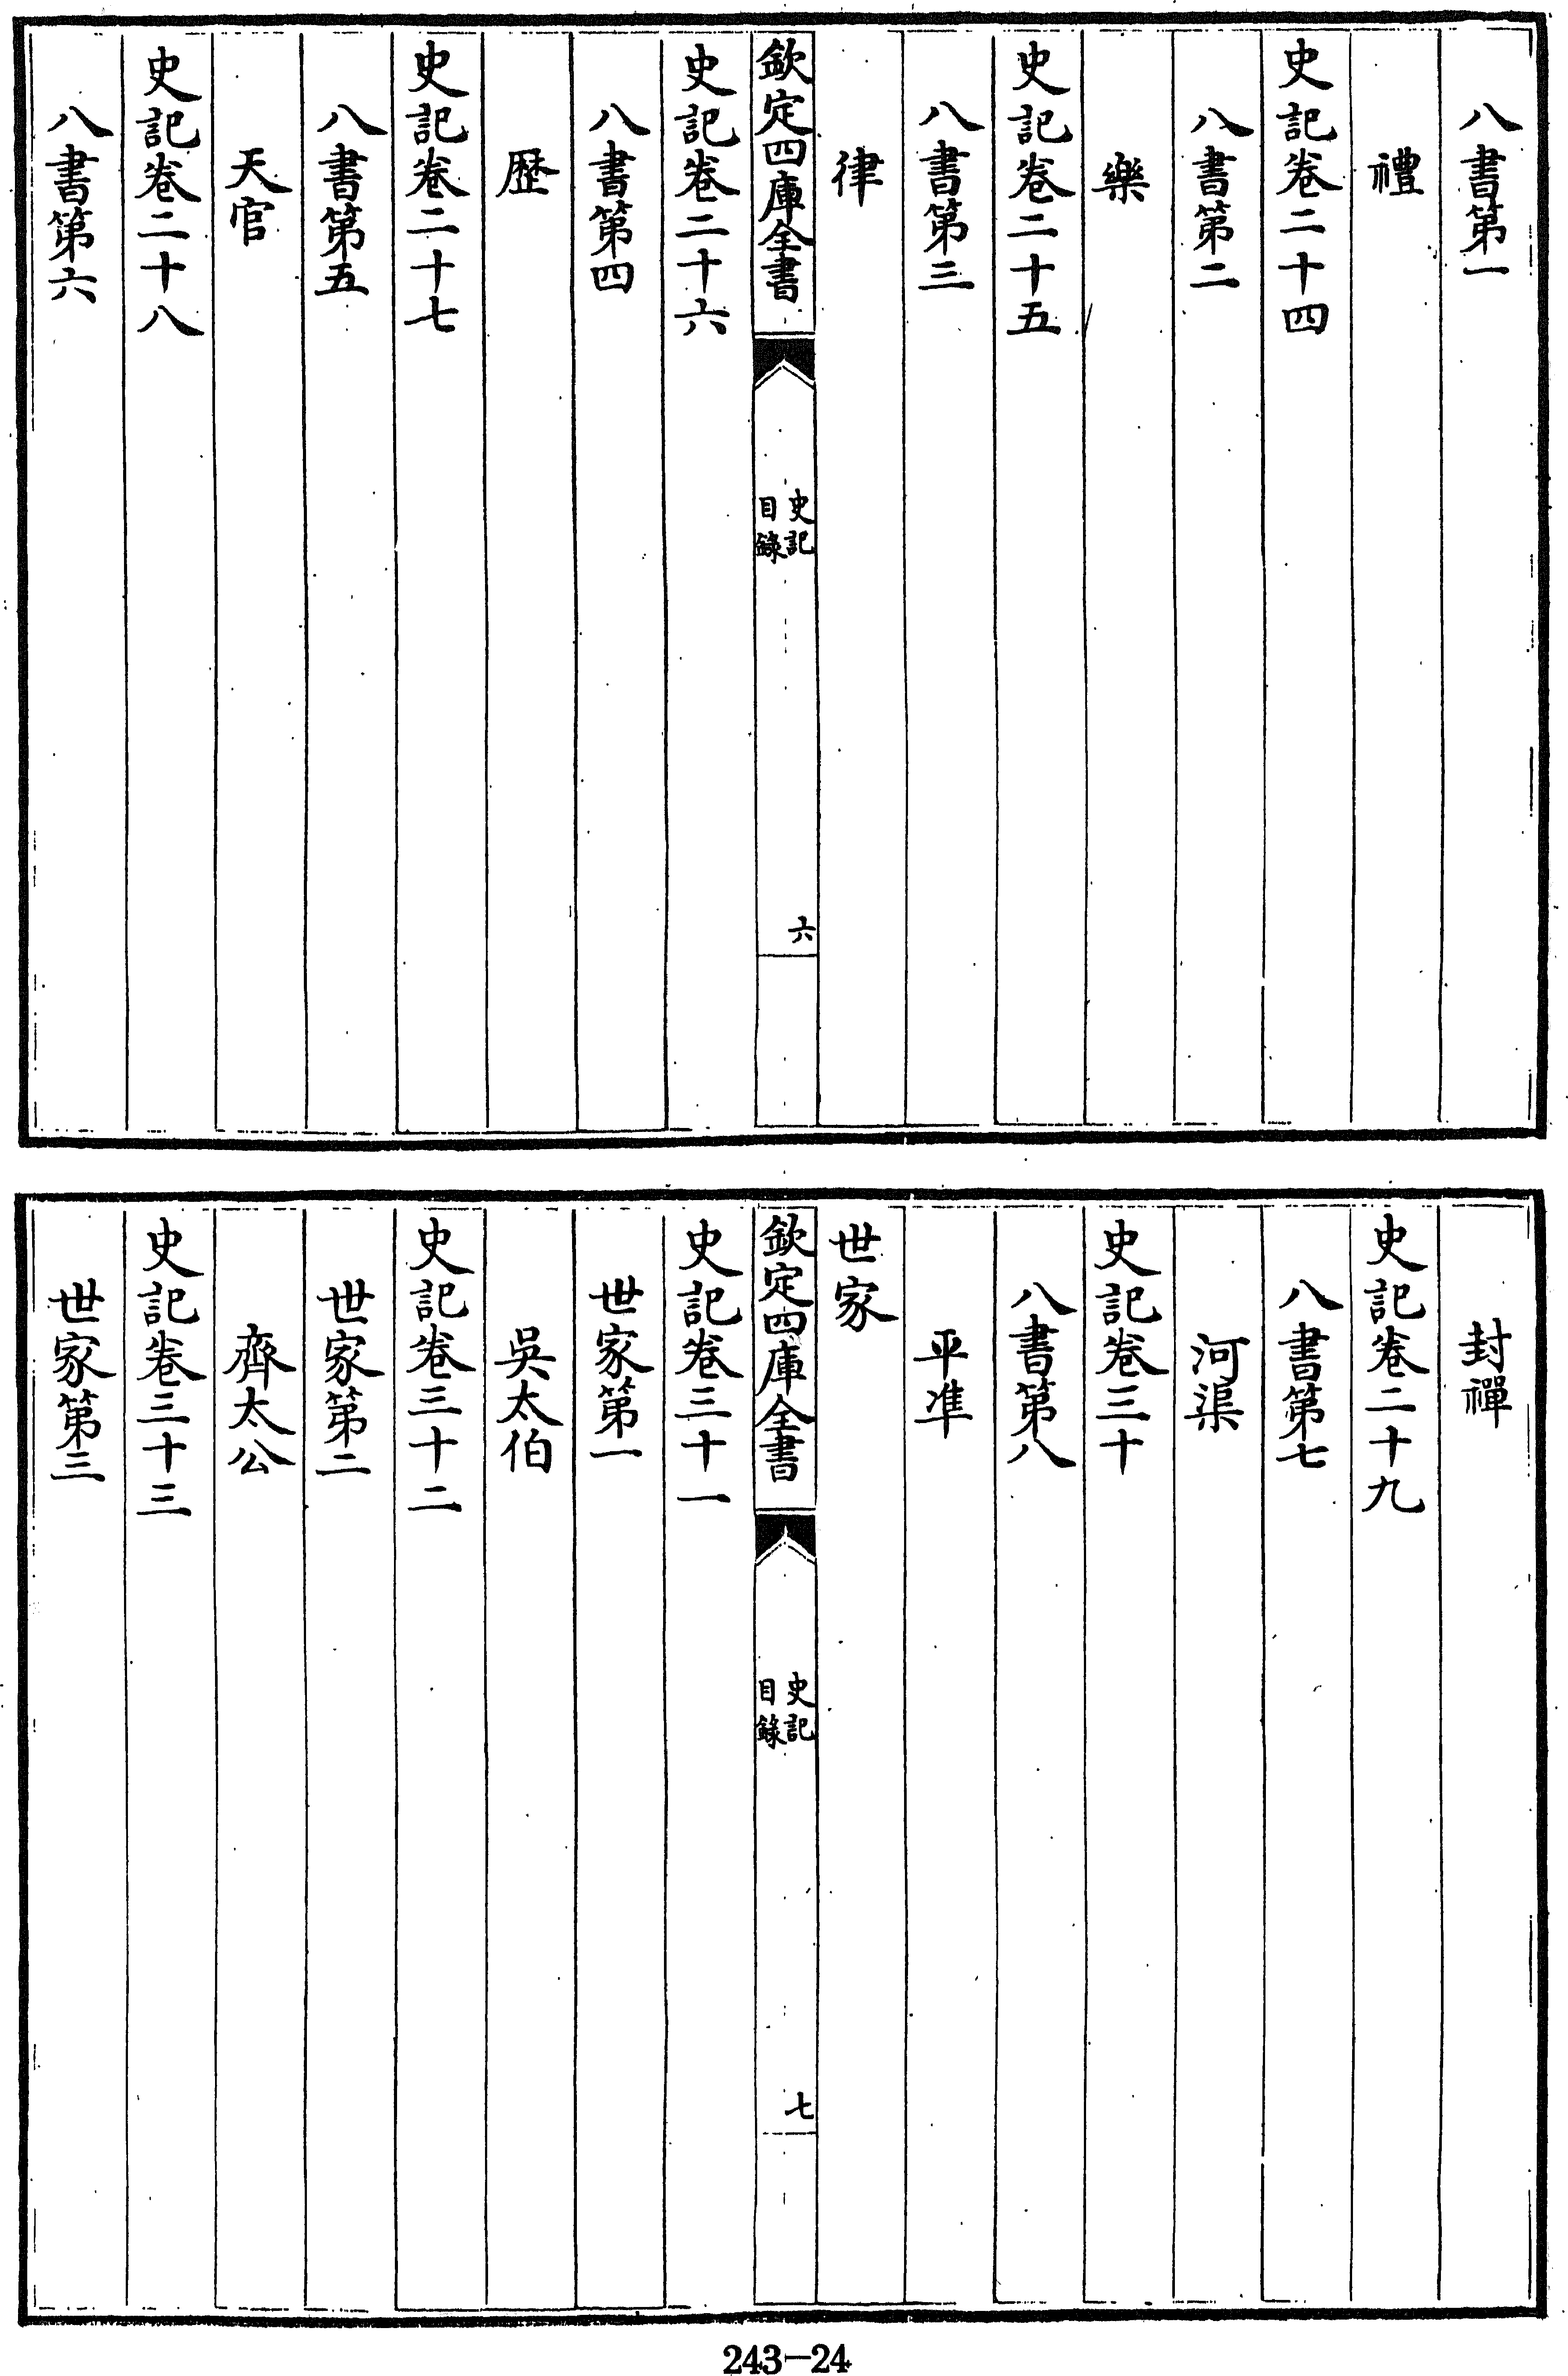 八書第一
禮
史記卷二十四
八書第二
樂
史記卷二十五
八書第三
律
欽定四庫全書
史記
目錄
六
史記卷二十六
八書第四
歴
史記卷二十七
八書第五
天官
史記卷二十八
八書第六
封禪
史記卷二十九
八書第七
河渠
史記卷三十
八書第八
平準
世家
欽定四庫全書
史記
目錄
七
史記卷三十一
世家第一
吳太伯
史記卷三十二
世家第二
齊太公
史記卷三十三
世家第三
243-24